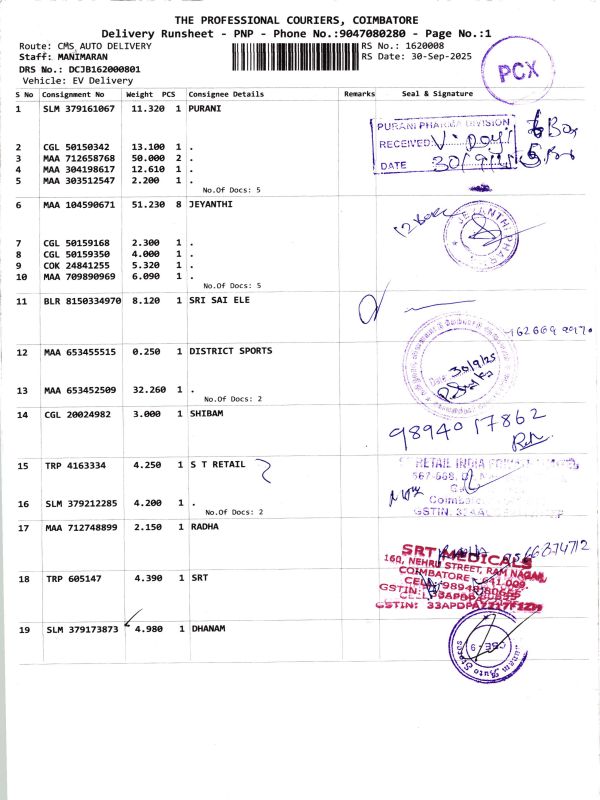 THE PROFESSIONAL COURIERS, COIMBATORE
Delivery Runsheet - PNP - Phone No.:9047080280 - Page No.:1
Route: CMS AUTO DELIVERY
RS No.: 1620008
Staff: MANIMARAN
RS Date: 30-Sep-2025
DRS No.: DCJB162000801
Vehicle: EV Delivery
PCX
S No Consignment No Weight PCS Consignee Details Remarks Seal & Signature
1 SLM 379161067 11.320 1 PURANI
PURANI PHARMA DIVISION
RECEIVED:
DATE 30/9/25
Box
5 Box
2 CGL 50150342 13.100 1 .
3 MAA 712658768 50.000 2 .
4 MAA 304198617 12.610 1 .
5 MAA 303512547 2.200 1 .
No.Of Docs: 5
6 MAA 104590671 51.230 8 JEYANTHI
12 Box
JEYANTHI PHAR
7 CGL 50159168 2.300 1 .
8 CGL 50159350 4.000 1 .
9 COK 24841255 5.320 1 .
10 MAA 709890969 6.090 1 .
No.Of Docs: 5
11 BLR 8150334970 8.120 1 SRI SAI ELE
12 MAA 653455515 0.250 1 DISTRICT SPORTS
Date 30/9/25
13 MAA 653452509 32.260 1 .
No.Of Docs: 2
14 CGL 20024982 3.000 1 SHIBAM
9894017862
15 TRP 4163334 4.250 1 S T RETAIL
RETAIL INDIA
16 SLM 379212285 4.200 1 .
No.Of Docs: 2
GSTIN.
17 MAA 712748899 2.150 1 RADHA
9566374712
18 TRP 605147 4.390 1 SRT
SRT MEDICALS
160, NEHRU STREET, RAM NAGAR,
COIMBATORE - 641 009.
GSTIN: 33APDPA7217F1ZH
19 SLM 379173873 4.980 1 DHANAM
CBE - 9